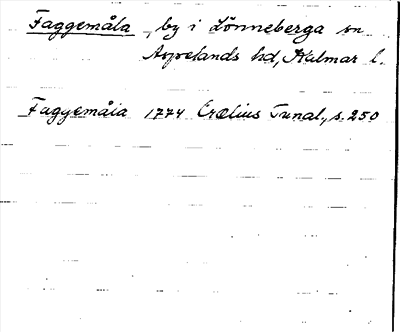 Faggemåla, by i Lönneberga sn
Aspelands hd, Kalmar l.
Faggemåla 1774 Crælius Tunal., s. 250